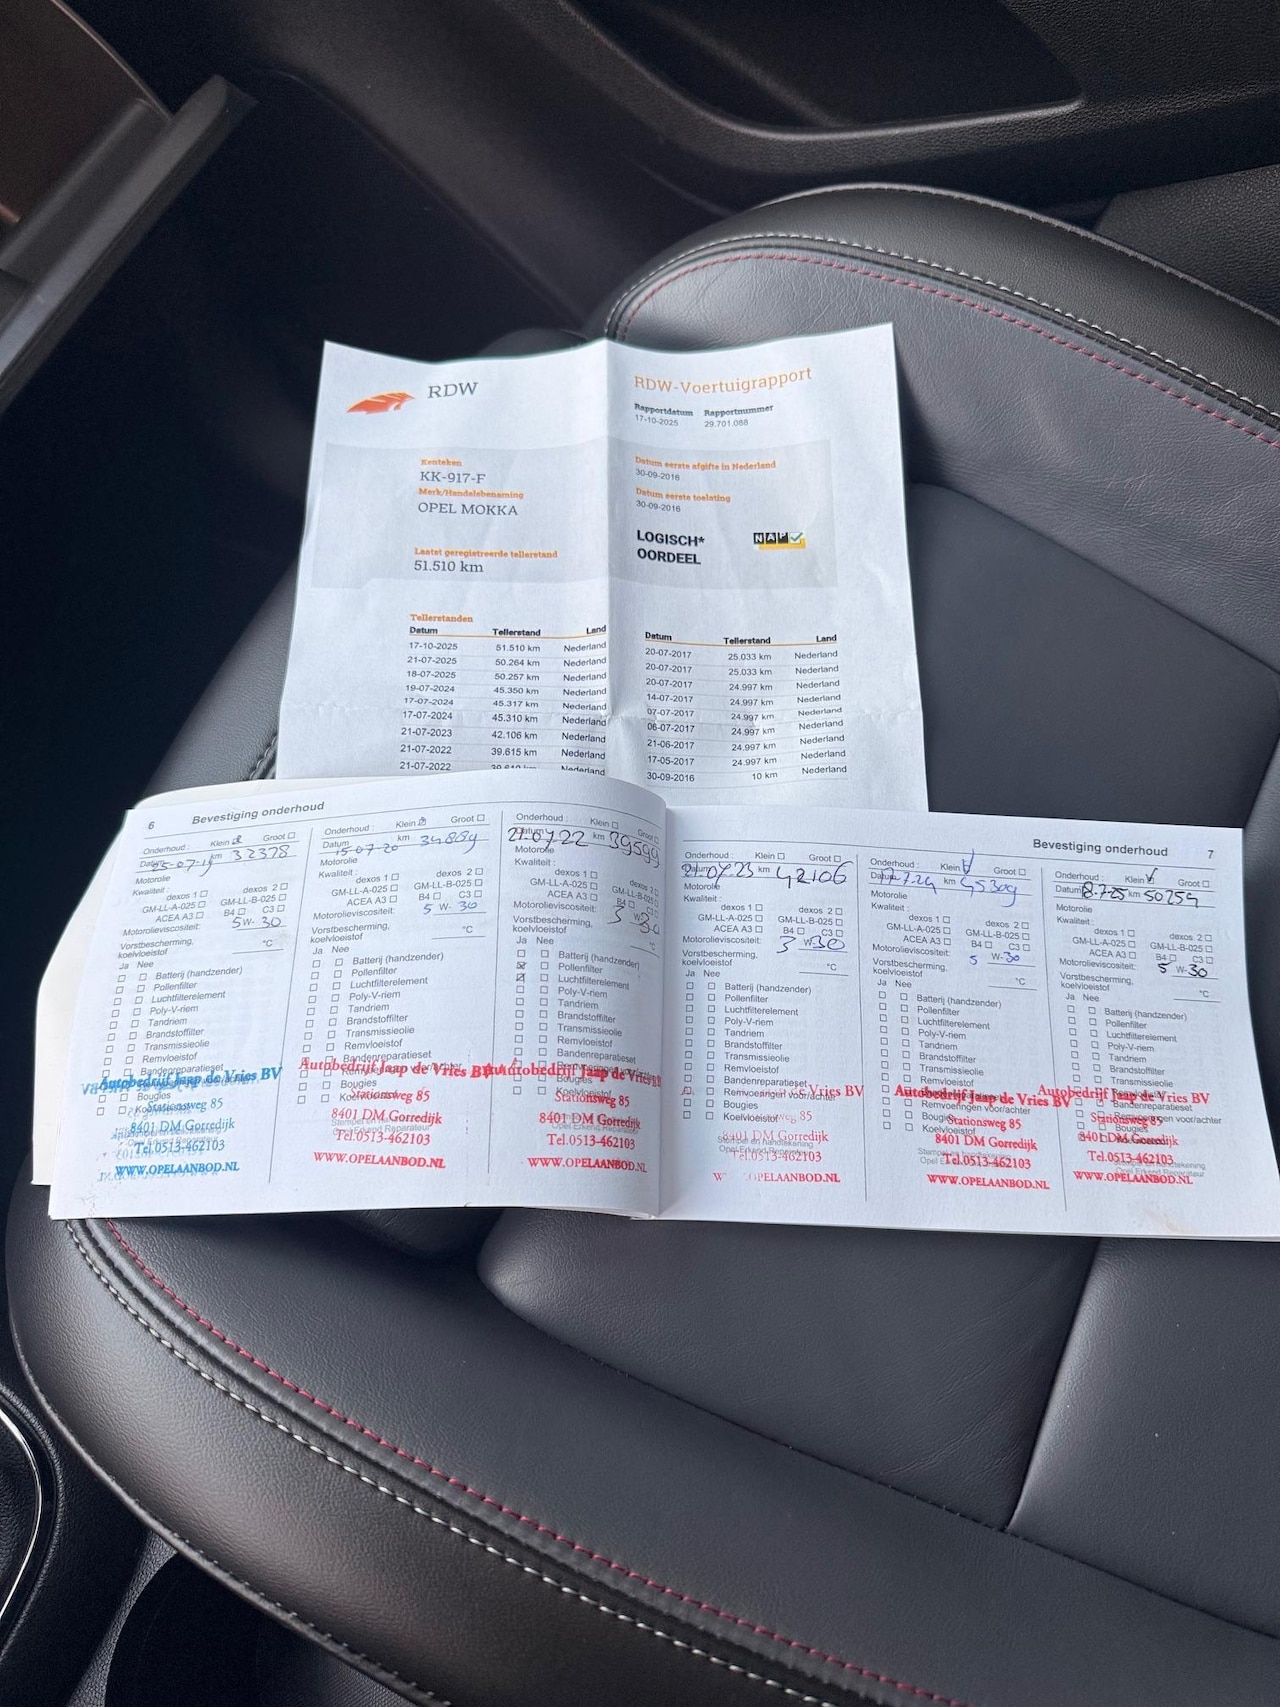 RDW
RDW-Voertuigrapport
Rapportdatum Rapportnummer
17-10-2025 29.701.088
Kenteken
KK-917-F
Merk/Handelsbenaming
OPEL MOKKA
Laatst geregistreerde tellerstand
51.510 km
Datum eerste afgifte in Nederland
30-09-2016
Datum eerste toelating
30-09-2016
LOGISCH*
OORDEEL
NAP
Tellerstanden
Datum Tellerstand Land
17-10-2025 51.510 km Nederland
21-07-2025 50.264 km Nederland
18-07-2025 50.257 km Nederland
19-07-2024 45.350 km Nederland
17-07-2024 45.317 km Nederland
17-07-2024 45.310 km Nederland
21-07-2023 42.106 km Nederland
21-07-2022 39.615 km Nederland
21-07-2022 Nederland
Datum Tellerstand Land
20-07-2017 25.033 km Nederland
20-07-2017 25.033 km Nederland
20-07-2017 24.997 km Nederland
14-07-2017 24.997 km Nederland
07-07-2017 24.997 km Nederland
06-07-2017 24.997 km Nederland
21-06-2017 24.997 km Nederland
17-05-2017 24.997 km Nederland
30-09-2016 10 km Nederland
6 Bevestiging onderhoud
Onderhoud : Klein Groot
Datum km 32378
Motorolie
Kwaliteit :
dexos 1 dexos 2
GM-LL-A-025 GM-LL-B-025
ACEA A3 B4 C3
Motorolieviscositeit: 5 W- 30
Vorstbescherming, koelvloeistof °C
Ja Nee
Batterij (handzender)
Pollenfilter
Luchtfilterelement
Poly-V-riem
Tandriem
Brandstoffilter
Transmissieolie
Remvloeistof
Bandenreparatieset
Autobedrijf Jaap de Vries BV
Stationsweg 85
8401 DM Gorredijk
Tel.0513-462103
WWW.OPELAANBOD.NL
Onderhoud : Klein Groot
Datum 15-07-20 km
Motorolie
Kwaliteit :
dexos 1 dexos 2
GM-LL-A-025 GM-LL-B-025
ACEA A3 B4 C3
Motorolieviscositeit: 5 W- 30
Vorstbescherming, koelvloeistof °C
Ja Nee
Batterij (handzender)
Pollenfilter
Luchtfilterelement
Poly-V-riem
Tandriem
Brandstoffilter
Transmissieolie
Remvloeistof
Bandenreparatieset
Bougies
Autobedrijf Jaap de Vries BV
Stationsweg 85
8401 DM Gorredijk
Tel.0513-462103
WWW.OPELAANBOD.NL
Onderhoud : Klein Groot
Datum 21-07-22 km 39599
Motorolie
Kwaliteit :
dexos 1 dexos 2
GM-LL-A-025 GM-LL-B-025
ACEA A3 B4 C3
Motorolieviscositeit: 5 W 30
Vorstbescherming, koelvloeistof °C
Ja Nee
Batterij (handzender)
Pollenfilter
Luchtfilterelement
Poly-V-riem
Tandriem
Brandstoffilter
Transmissieolie
Remvloeistof
Bandenreparatieset
Bougies
Koelvloeistof
Autobedrijf Jaap de Vries
Stationsweg 85
8401 DM Gorredijk
Tel.0513-462103
WWW.OPELAANBOD.NL
Bevestiging onderhoud 7
Onderhoud : Klein Groot
Datum 21-07-23 km 42106
Motorolie
Kwaliteit :
dexos 1 dexos 2
GM-LL-A-025 GM-LL-B-025
ACEA A3 B4 C3
Motorolieviscositeit: W-30
Vorstbescherming, koelvloeistof °C
Ja Nee
Batterij (handzender)
Pollenfilter
Luchtfilterelement
Poly-V-riem
Tandriem
Brandstoffilter
Transmissieolie
Remvloeistof
Bandenreparatieset
Remvoeringen voor/achter
Bougies
Koelvloeistof
de Vries BV
85
8401 DM Gorredijk
Tel.0513-462103
OPELAANBOD.NL
Onderhoud : Klein Groot
Datum 17-7-24 km 45309
Motorolie
Kwaliteit :
dexos 1 dexos 2
GM-LL-A-025 GM-LL-B-025
ACEA A3 B4 C3
Motorolieviscositeit: 5 W-30
Vorstbescherming, koelvloeistof °C
Ja Nee
Batterij (handzender)
Pollenfilter
Luchtfilterelement
Poly-V-riem
Tandriem
Brandstoffilter
Transmissieolie
Remvloeistof
Remvoeringen voor/achter
Bougies
Koelvloeistof
Autobedrijf Jaap de Vries BV
Stationsweg 85
8401 DM Gorredijk
Tel.0513-462103
WWW.OPELAANBOD.NL
Onderhoud : Klein Groot
Datum 18-7-25 km 50254
Motorolie
Kwaliteit :
dexos 1 dexos 2
GM-LL-A-025 GM-LL-B-025
ACEA A3 B4 C3
Motorolieviscositeit: 5 W-30
Vorstbescherming, koelvloeistof °C
Ja Nee
Batterij (handzender)
Pollenfilter
Luchtfilterelement
Poly-V-riem
Tandriem
Brandstoffilter
Transmissieolie
Remvloeistof
Bandenreparatieset
Remvoeringen voor/achter
Bougies
Autobedrijf Jaap de Vries BV
Stationsweg 85
8401 DM Gorredijk
Tel.0513-462103
WWW.OPELAANBOD.NL